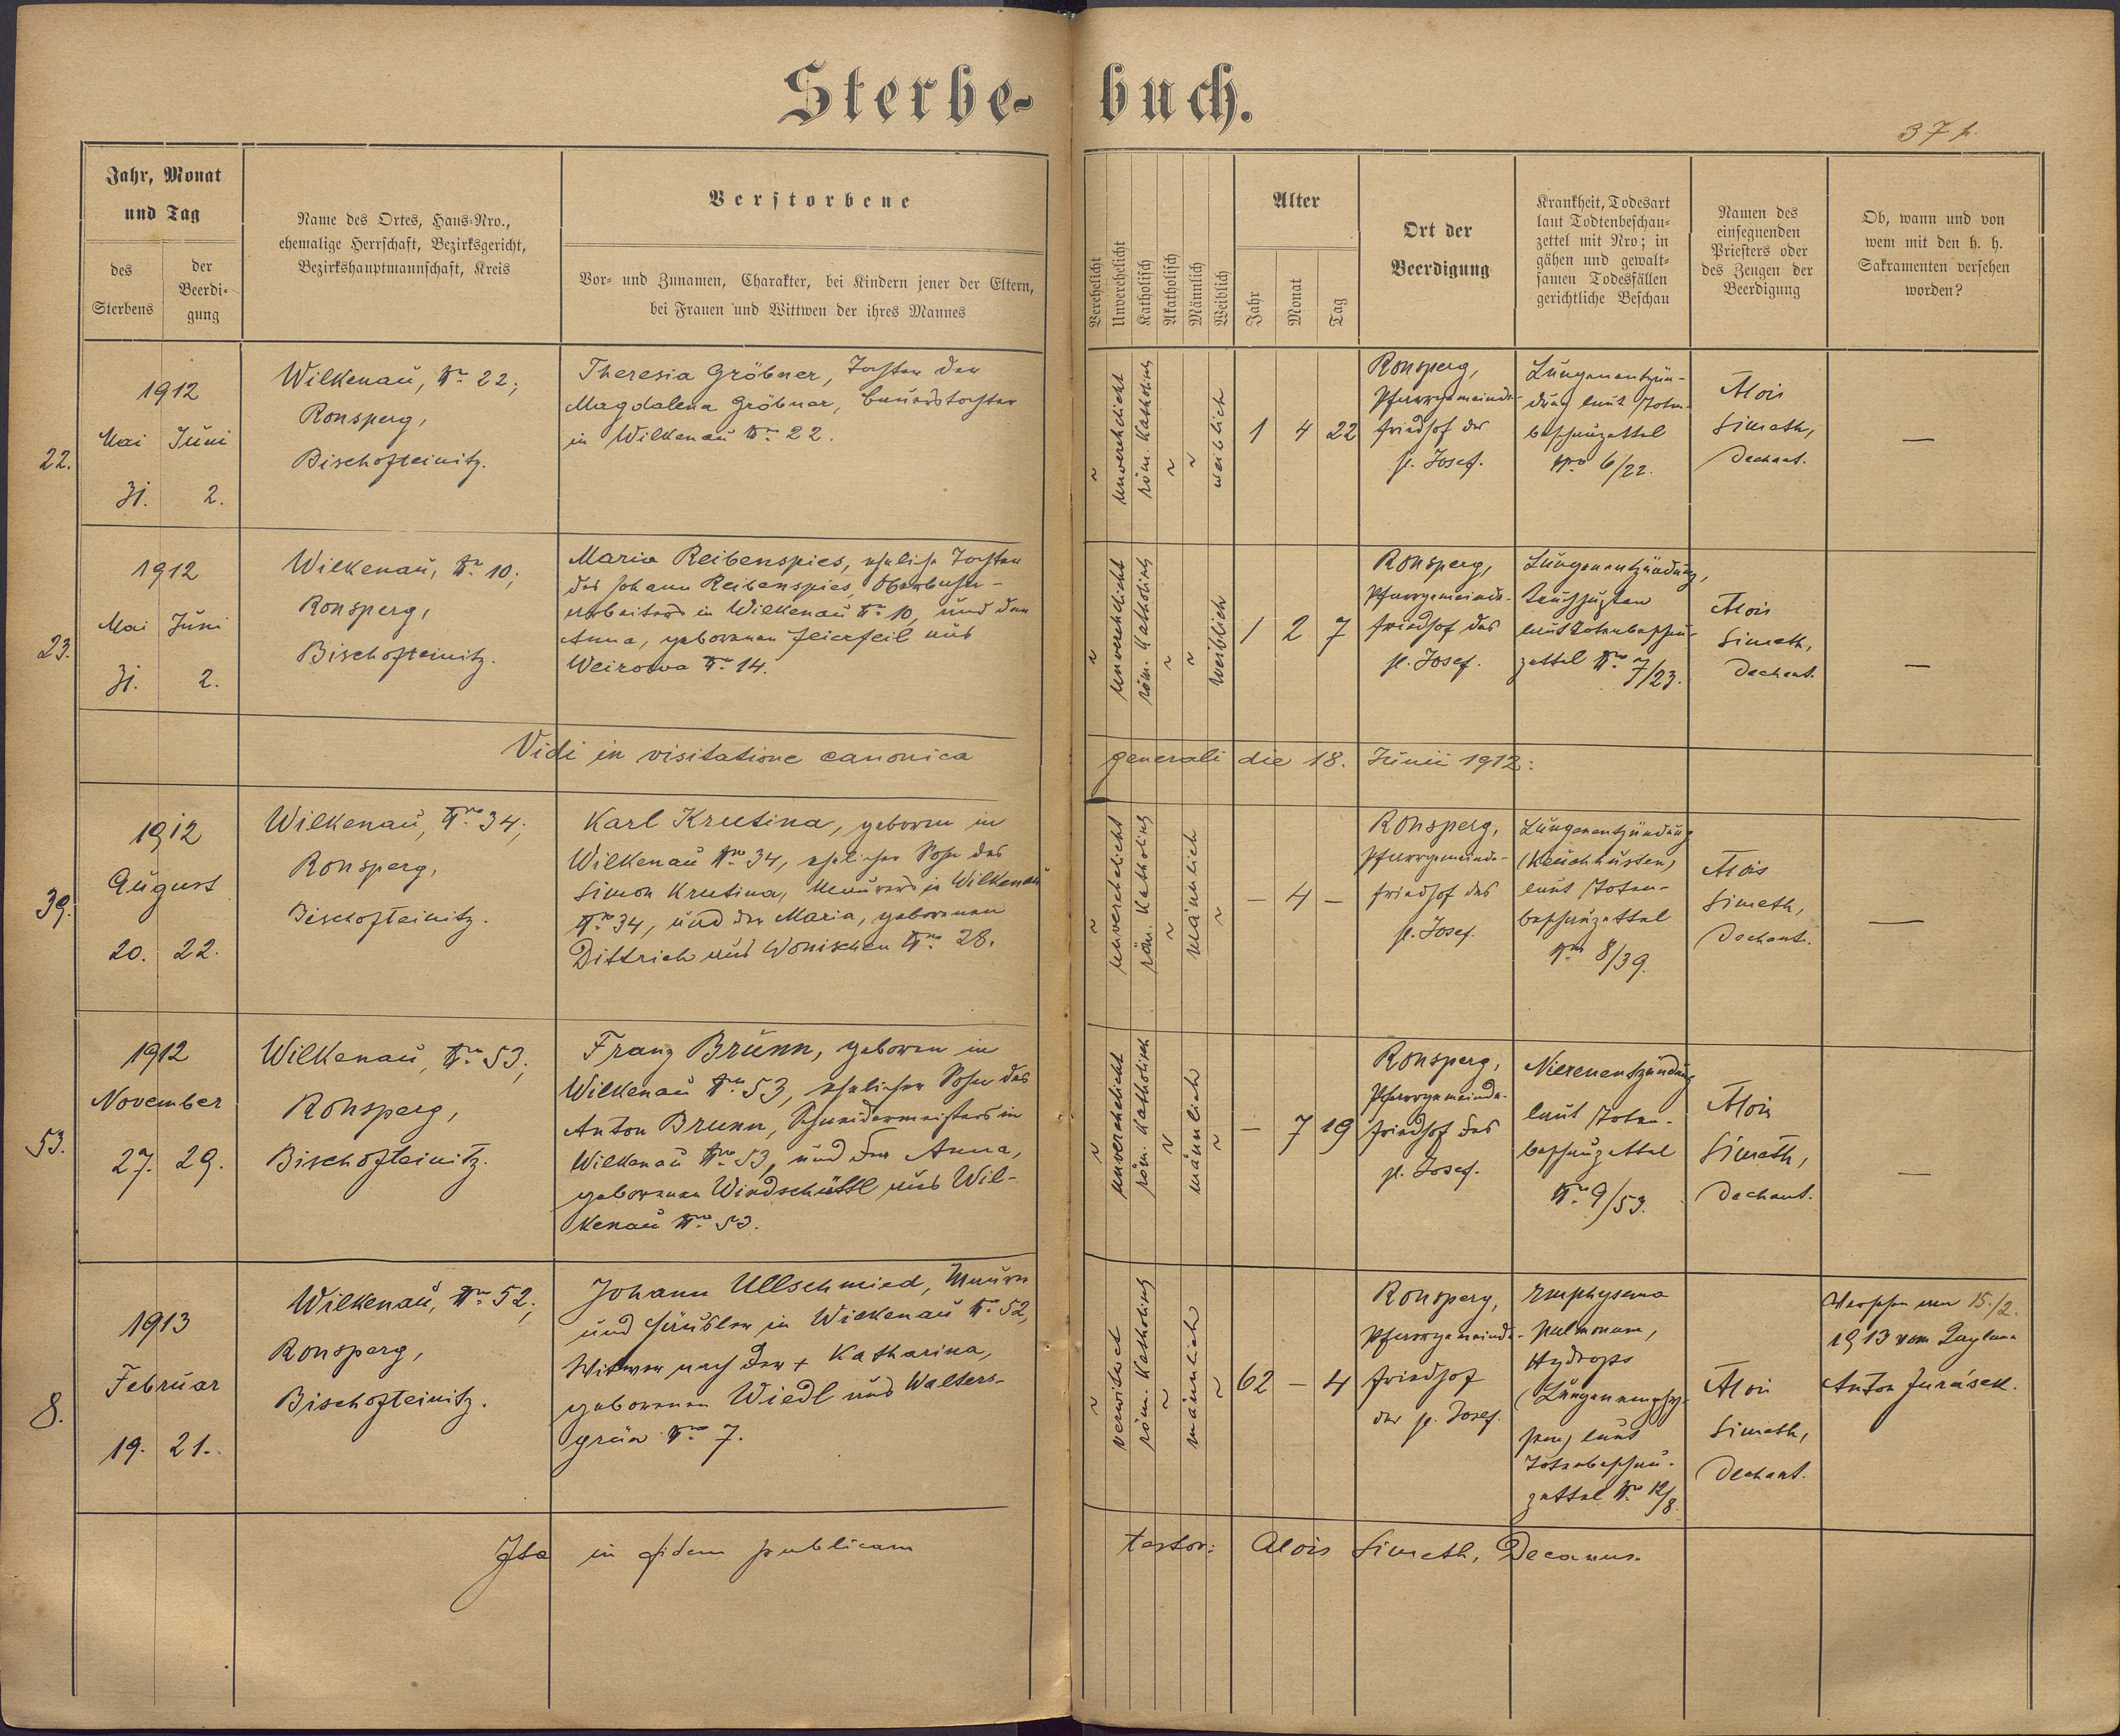 Sterbe-
buch.
37 p.
Jahr, Monat
und Tag
des
Sterbens
der
Beerdi-
gung
Name des Ortes, Haus-Nro.,
ehemalige Herrschaft, Bezirksgericht,
Bezirkshauptmannschaft, Kreis
Verstorbene
Vor- und Zunamen, Charakter, bei Kindern jener der Eltern,
bei Frauen und Wittwen der ihres Mannes
Verehelicht
Unverehelicht
Katholisch
Akatholisch
Männlich
Weiblich
Alter
Jahr
Monat
Tag
Ort der
Beerdigung
Krankheit, Todesart
laut Todtenbeschau-
zettel mit Nro; in
gähen und gewalt-
samen Todesfällen
gerichtliche Beschau
Namen des
einsegnenden
Priesters oder
des Zeugen der
Beerdigung
Ob, wann und von
wem mit den h. h.
Sakramenten versehen
worden?
22.
1912
Mai Juni
31. 2.
Wilkenau, Nro 22;
Ronsperg,
Bischofteinitz.
Theresia Gröbner, Tochter der
Magdalena Gröbner, Bauerstochter
in Wilkenau Nro 22.
~
unverehelicht
röm. katholisch
~
~
weiblich
1 4 22
Ronsperg,
Pfarrgemeinde-
friedhof des
hl. Josef.
Lungenentzün-
dung laut Toten-
beschauzettel
Nro 6/22.
Alois
Simeth,
Dechant.
—
23.
1912
Mai Juni
31. 2.
Wilkenau, Nro 10;
Ronsperg,
Bischofteinitz.
Maria Reibenspies, eheliche Tochter
des Johann Reibenspies, Oberbau-
arbeiters in Wilkenau Nro 10, und der
Anna, geborenen Feierfeil aus
Weirowa Nro 14.
~
unverehelicht
röm. katholisch
~
~
weiblich
1 2 7
Ronsperg,
Pfarrgemeinde-
friedhof des
hl. Josef.
Lungenentzündung,
Keuchhusten
laut Totenbeschau-
zettel Nro 7/23.
Alois
Simeth,
Dechant.
—
Vidi in visitatione canonica generali die 18. Junii 1912:
39.
1912
August
20. 22.
Wilkenau, Nro 34;
Ronsperg,
Bischofteinitz.
Karl Krutina, geboren in
Wilkenau Nro 34, ehelicher Sohn des
Simon Krutina, Maurers in Wilkenau
Nro 34, und der Maria, geborenen
Dittrich aus Wonischen Nro 28.
~
unverehelicht
röm. katholisch
~
männlich
~
— 4 —
Ronsperg,
Pfarrgemeinde-
friedhof des
hl. Josef.
Lungenentzündung
(Keuchhusten)
laut Toten-
beschauzettel
Nro 8/39.
Alois
Simeth,
Dechant.
—
53.
1912
November
27. 29.
Wilkenau, Nro 53;
Ronsperg,
Bischofteinitz.
Franz Brunn, geboren in
Wilkenau Nro 53, ehelicher Sohn des
Anton Brunn, Schneidermeisters in
Wilkenau Nro 53, und der Anna,
geborenen Windschüttl aus Wil-
kenau Nro 53.
~
unverehelicht
röm. katholisch
~
männlich
~
— 7 19
Ronsperg,
Pfarrgemeinde-
friedhof des
hl. Josef.
Nierenentzündung
laut Toten-
beschauzettel
Nro 9/53.
Alois
Simeth,
Dechant.
—
8.
1913
Februar
19. 21.
Wilkenau, Nro 52;
Ronsperg,
Bischofteinitz.
Johann Ullschmied, Maurer
und Häusler in Wilkenau Nro 52,
Witwer nach der + Katharina,
geborenen Wiedl aus Walters-
grün Nro 7.
~
verwitwet
röm. katholisch
~
männlich
~
62 — 4
Ronsperg,
Pfarrgemeinde-
friedhof
des hl. Josef.
Emphysema
pulmonum,
Hydrops
(Lungenemphy-
sem) laut
Totenbeschau-
zettel Nro 12/8.
Alois
Simeth,
Dechant.
Versehen am 15./2.
1913 vom Kaplan
Anton Jurásek.
Ita in fidem publicam testor: Alois Simeth, Decanus.